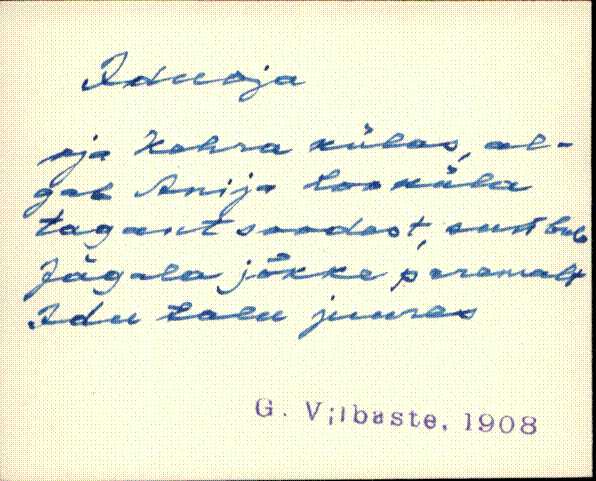 Iduoja
oja Kehra külas, al-
gab Anija Looküla
tagant soodest, suubub
Jägala jõkke paremalt
Idu talu juures
G. Vilbaste, 1908